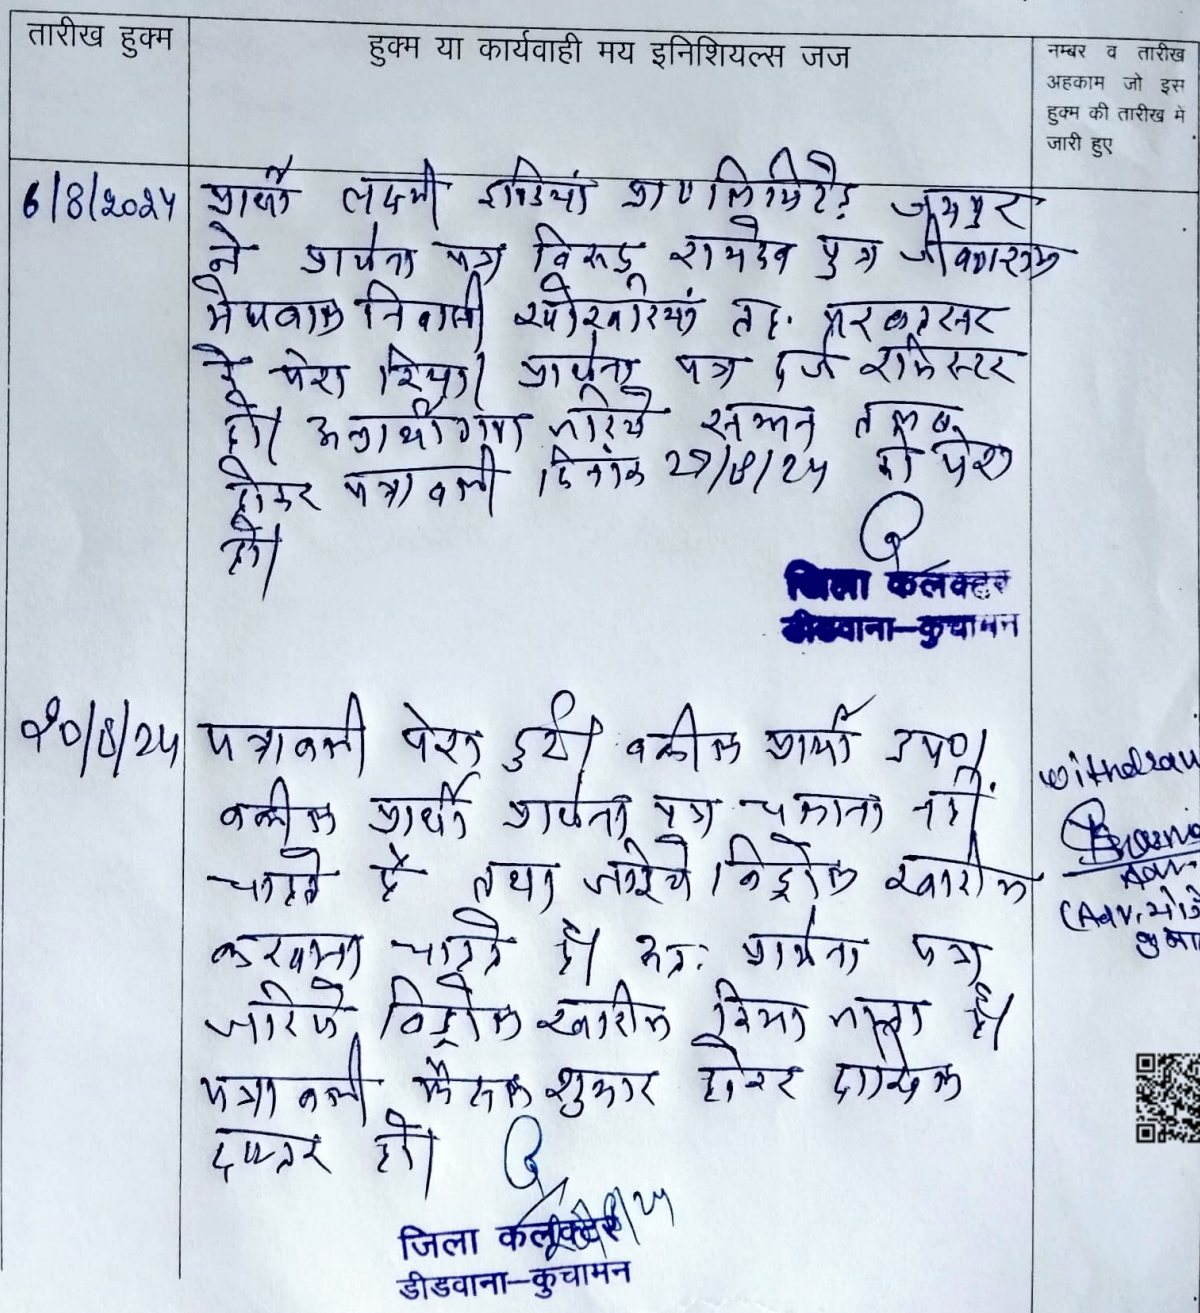 तारीख हुक्म
हुक्म या कार्यवाही मय इनिशियल्स जज
नम्बर व तारीख
अहकाम जो इस
हुक्म की तारीख में
जारी हुए
6/8/2024
प्रार्थी लक्ष्मी इंडिया प्रा० लिमिटेड जयपुर
ने प्रार्थना पत्र विरूद्ध रामदेव पुत्र जीवणराम
मेघवाल निवासी तह.
में पेश किया। प्रार्थना पत्र दर्ज रजिस्टर
हो। अप्रार्थीगण जरिये सम्मन तलब
होकर पत्रावली दिनांक 27/8/24 को पेश
हो।
जिला कलक्टर
डीडवाना–कुचामन
20/8/24
पत्रावली पेश हुई। वकील प्रार्थी उप०।
वकील प्रार्थी प्रार्थना पत्र चलाना नहीं
चाहते है तथा जरिये विड्रोल खारीज
करवाना चाहते है। अतः प्रार्थना पत्र
जरिये विड्रोल खारीज किया जाता है।
पत्रावली फैसल शुमार होकर दाखिल
दफ्तर हो।
जिला कलक्टर
डीडवाना–कुचामन
withdraw
Adv
(Adv.